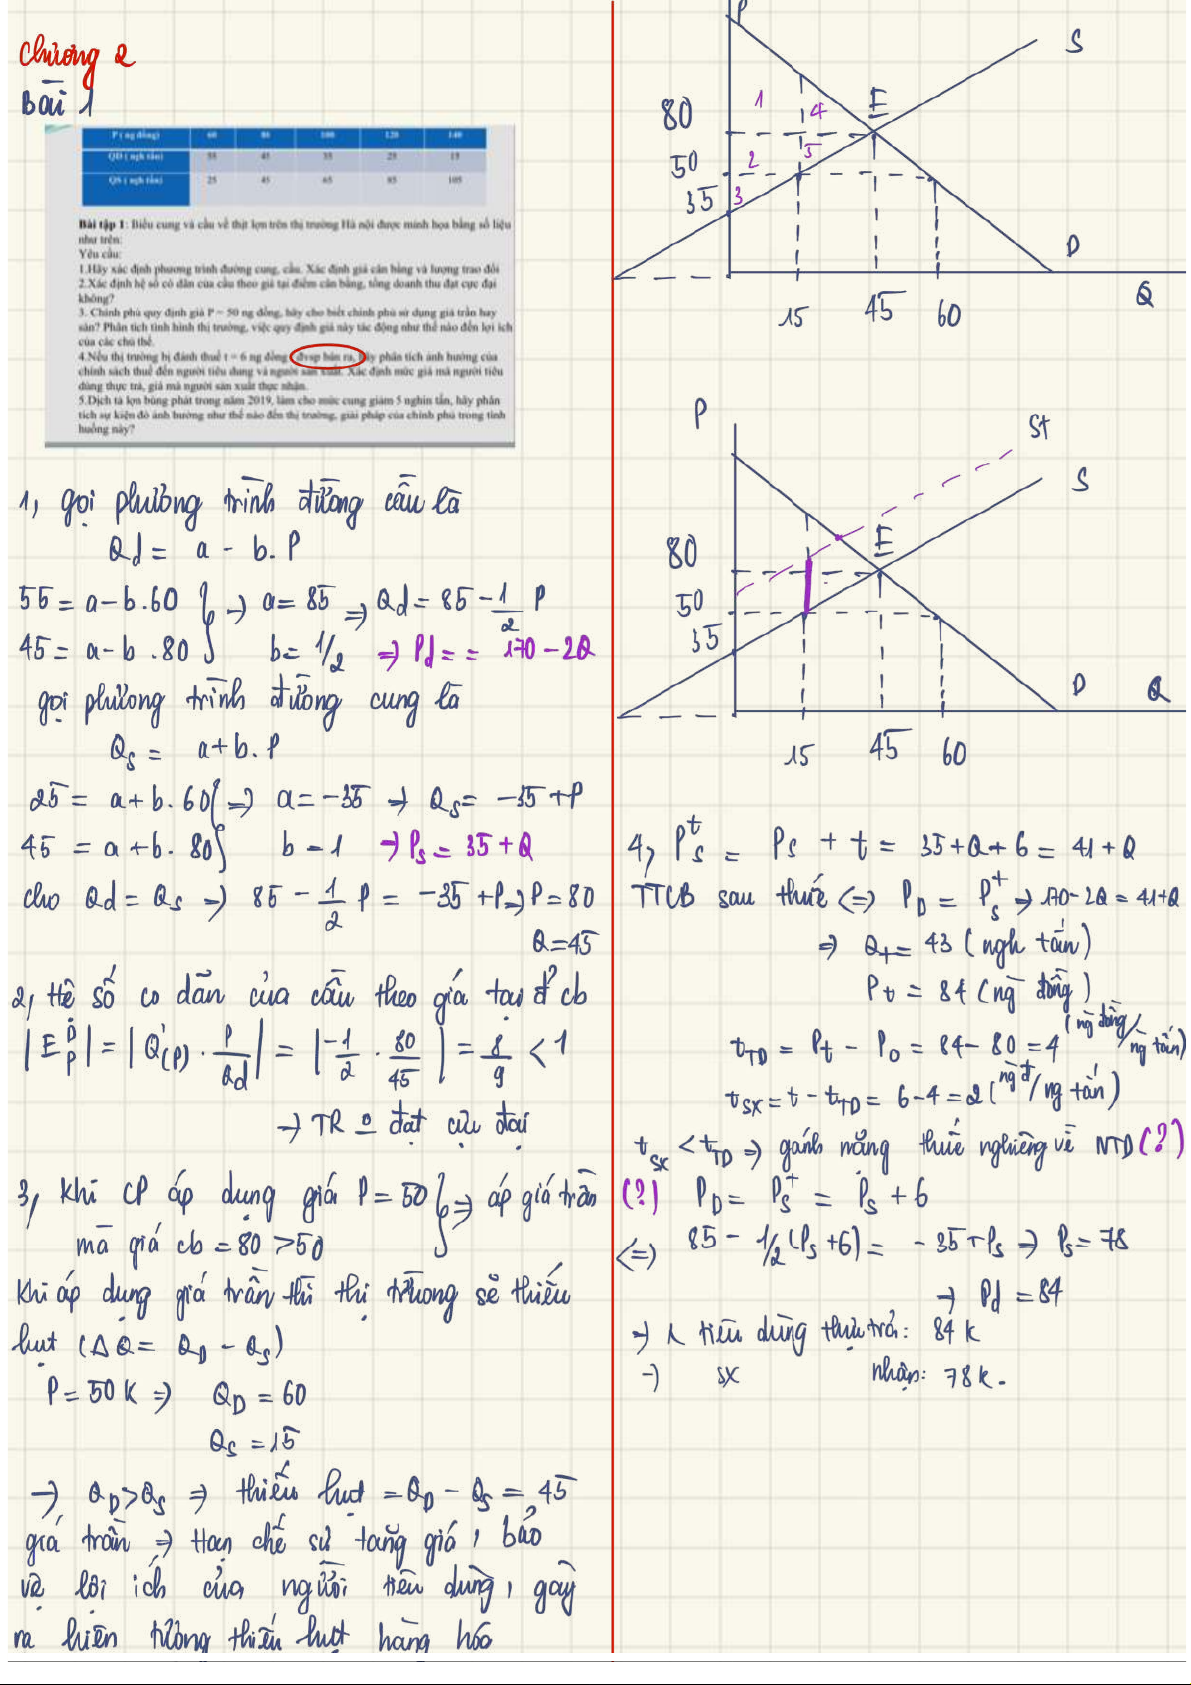 Chương 2
Bài 1
P ( ng đồng) 60 80 100 120 140
QD ( ngh tấn) 55 45 35 25 15
QS ( ngh tấn) 25 45 65 85 105
Bài tập 1: Biểu cung và cầu về thịt lợn trên thị trường Hà nội được minh họa bằng số liệu
như trên:
Yêu cầu:
1.Hãy xác định phương trình đường cung, cầu. Xác định giá cân bằng và lượng trao đổi
2.Xác định hệ số co dãn của cầu theo giá tại điểm cân bằng, tổng doanh thu đạt cực đại
không?
3. Chính phủ quy định giá P = 50 ng đồng, hãy cho biết chính phủ sử dụng giá trần hay
sàn? Phân tích tình hình thị trường, việc quy định giá này tác động như thế nào đến lợi ích
của các chủ thể.
4.Nếu thị trường bị đánh thuế t = 6 ng đồng / đvsp bán ra, hãy phân tích ảnh hưởng của
chính sách thuế đến người tiêu dùng và người sản xuất. Xác định mức giá mà người tiêu
dùng thực trả, giá mà người sản xuất thực nhận.
5.Dịch tả lợn bùng phát trong năm 2019, làm cho mức cung giảm 5 nghìn tấn, hãy phân
tích sự kiện đó ảnh hưởng như thế nào đến thị trường, giải pháp của chính phủ trong tình
huống này?
1, gọi phương trình đường cầu là
Qd = a - b.P
55 = a - b.60 } → a = 85 ⇒ Qd = 85 - 1/2 P
45 = a - b.80 b = 1/2 ⇒ Pd = = 170 - 2Q
gọi phương trình đường cung là
Qs = a + b.P
25 = a + b.60 } → a = -35 → Qs = -35 + P
45 = a + b.80 b = 1 → Ps = 35 + Q
cho Qd = Qs → 85 - 1/2 P = -35 + P → P = 80
Q = 45
2, Hệ số co dãn của cầu theo giá tại đ' cb
|E^D_P| = |Q'(P) . P/Qd| = |-1/2 . 80/45| = 8/9 < 1
→ TR o đạt cực đại
3, Khi CP áp dụng giá P = 50 } ⇒ áp giá trần
mà giá cb = 80 > 50
Khi áp dụng giá trần thì thị trường sẽ thiếu
hụt (ΔQ = QD - QS)
P = 50K ⇒ QD = 60
QS = 15
→ QD > QS ⇒ thiếu hụt = QD - QS = 45
giá trần ⇒ Hạn chế sự tăng giá, bảo
vệ lợi ích của người tiêu dùng, gây
ra hiện tượng thiếu hụt hàng hóa
P
S
80
1
4
E
50
2
5
35
3
D
15
45
60
Q
P
St
S
80
E
50
35
D
Q
15
45
60
4, Ps^t = Ps + t = 35 + Q + 6 = 41 + Q
TTCB sau thuế ⇔ PD = Ps^t → 170 - 2Q = 41 + Q
⇒ Qt = 43 (ngh tấn)
Pt = 84 (ng đồng)
tTD = Pt - P0 = 84 - 80 = 4 (ng đồng/ng tấn)
tSX = t - tTD = 6 - 4 = 2 (ng đ/ng tấn)
tSX < tTD ⇒ gánh nặng thuế nghiêng về NTD (?)
(?) PD = Ps^t = Ps + 6
⇔ 85 - 1/2 (Ps + 6) = -35 + Ps → Ps = 78
→ Pd = 84
→ tiêu dùng thực trả: 84k
→ sx nhận: 78k.